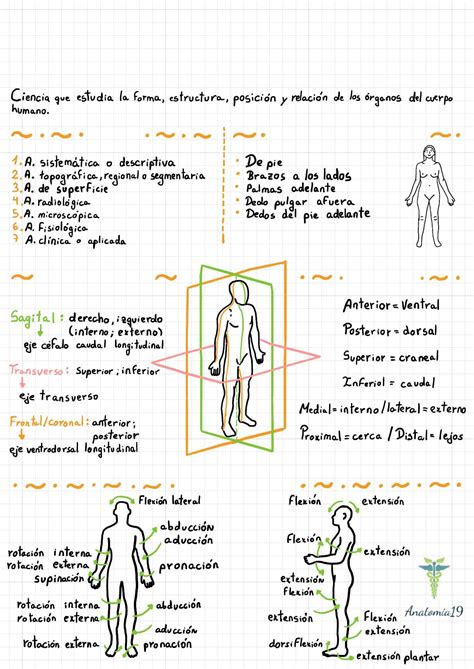 Ciencia que estudia la forma, estructura, posición y relación de los órganos del cuerpo
humano.
1. A. sistemática o descriptiva
2. A. topográfica, regional o segmentaria
3. A. de superficie
4. A. radiológica
5. A. microscópica
6. A. Fisiológica
7 A. clínica o aplicada
· De pie
· Brazos a los lados
· Palmas adelante
· Dedo pulgar afuera
· Dedos del pie adelante
Sagital: derecho, izquierdo
(interno; externo)
eje céfalo caudal longitudinal
Transverso: Superior; inferior
eje transverso
Frontal/coronal: anterior;
posterior
eje ventrodorsal longitudinal
Anterior = Ventral
Posterior = dorsal
Superior = craneal
Inferior = caudal
Medial = interno / lateral = externo
Proximal = cerca / Distal = lejos
Flexión lateral
abducción
aducción
rotación interna
rotación externa
pronación
supinación
rotación interna
abducción
rotación externa
aducción
rotación externa
pronación
Flexión
extensión
Flexión
extensión
extensión
Flexión
Flexión
extensión
dorsiFlexión
extensión plantar
Anatomía19